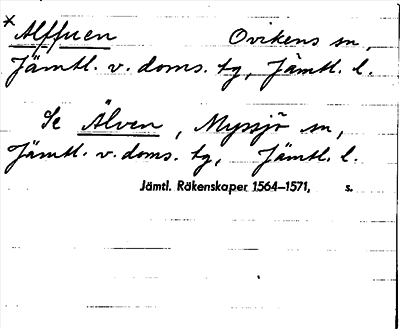 * Alffuen Ovikens sn,
Jämtl. v. doms. tg, Jämtl. l.
Se Älven, Myssjö sn,
Jämtl. v. doms. tg, Jämtl. l.
Jämtl. Räkenskaper 1564–1571, s.